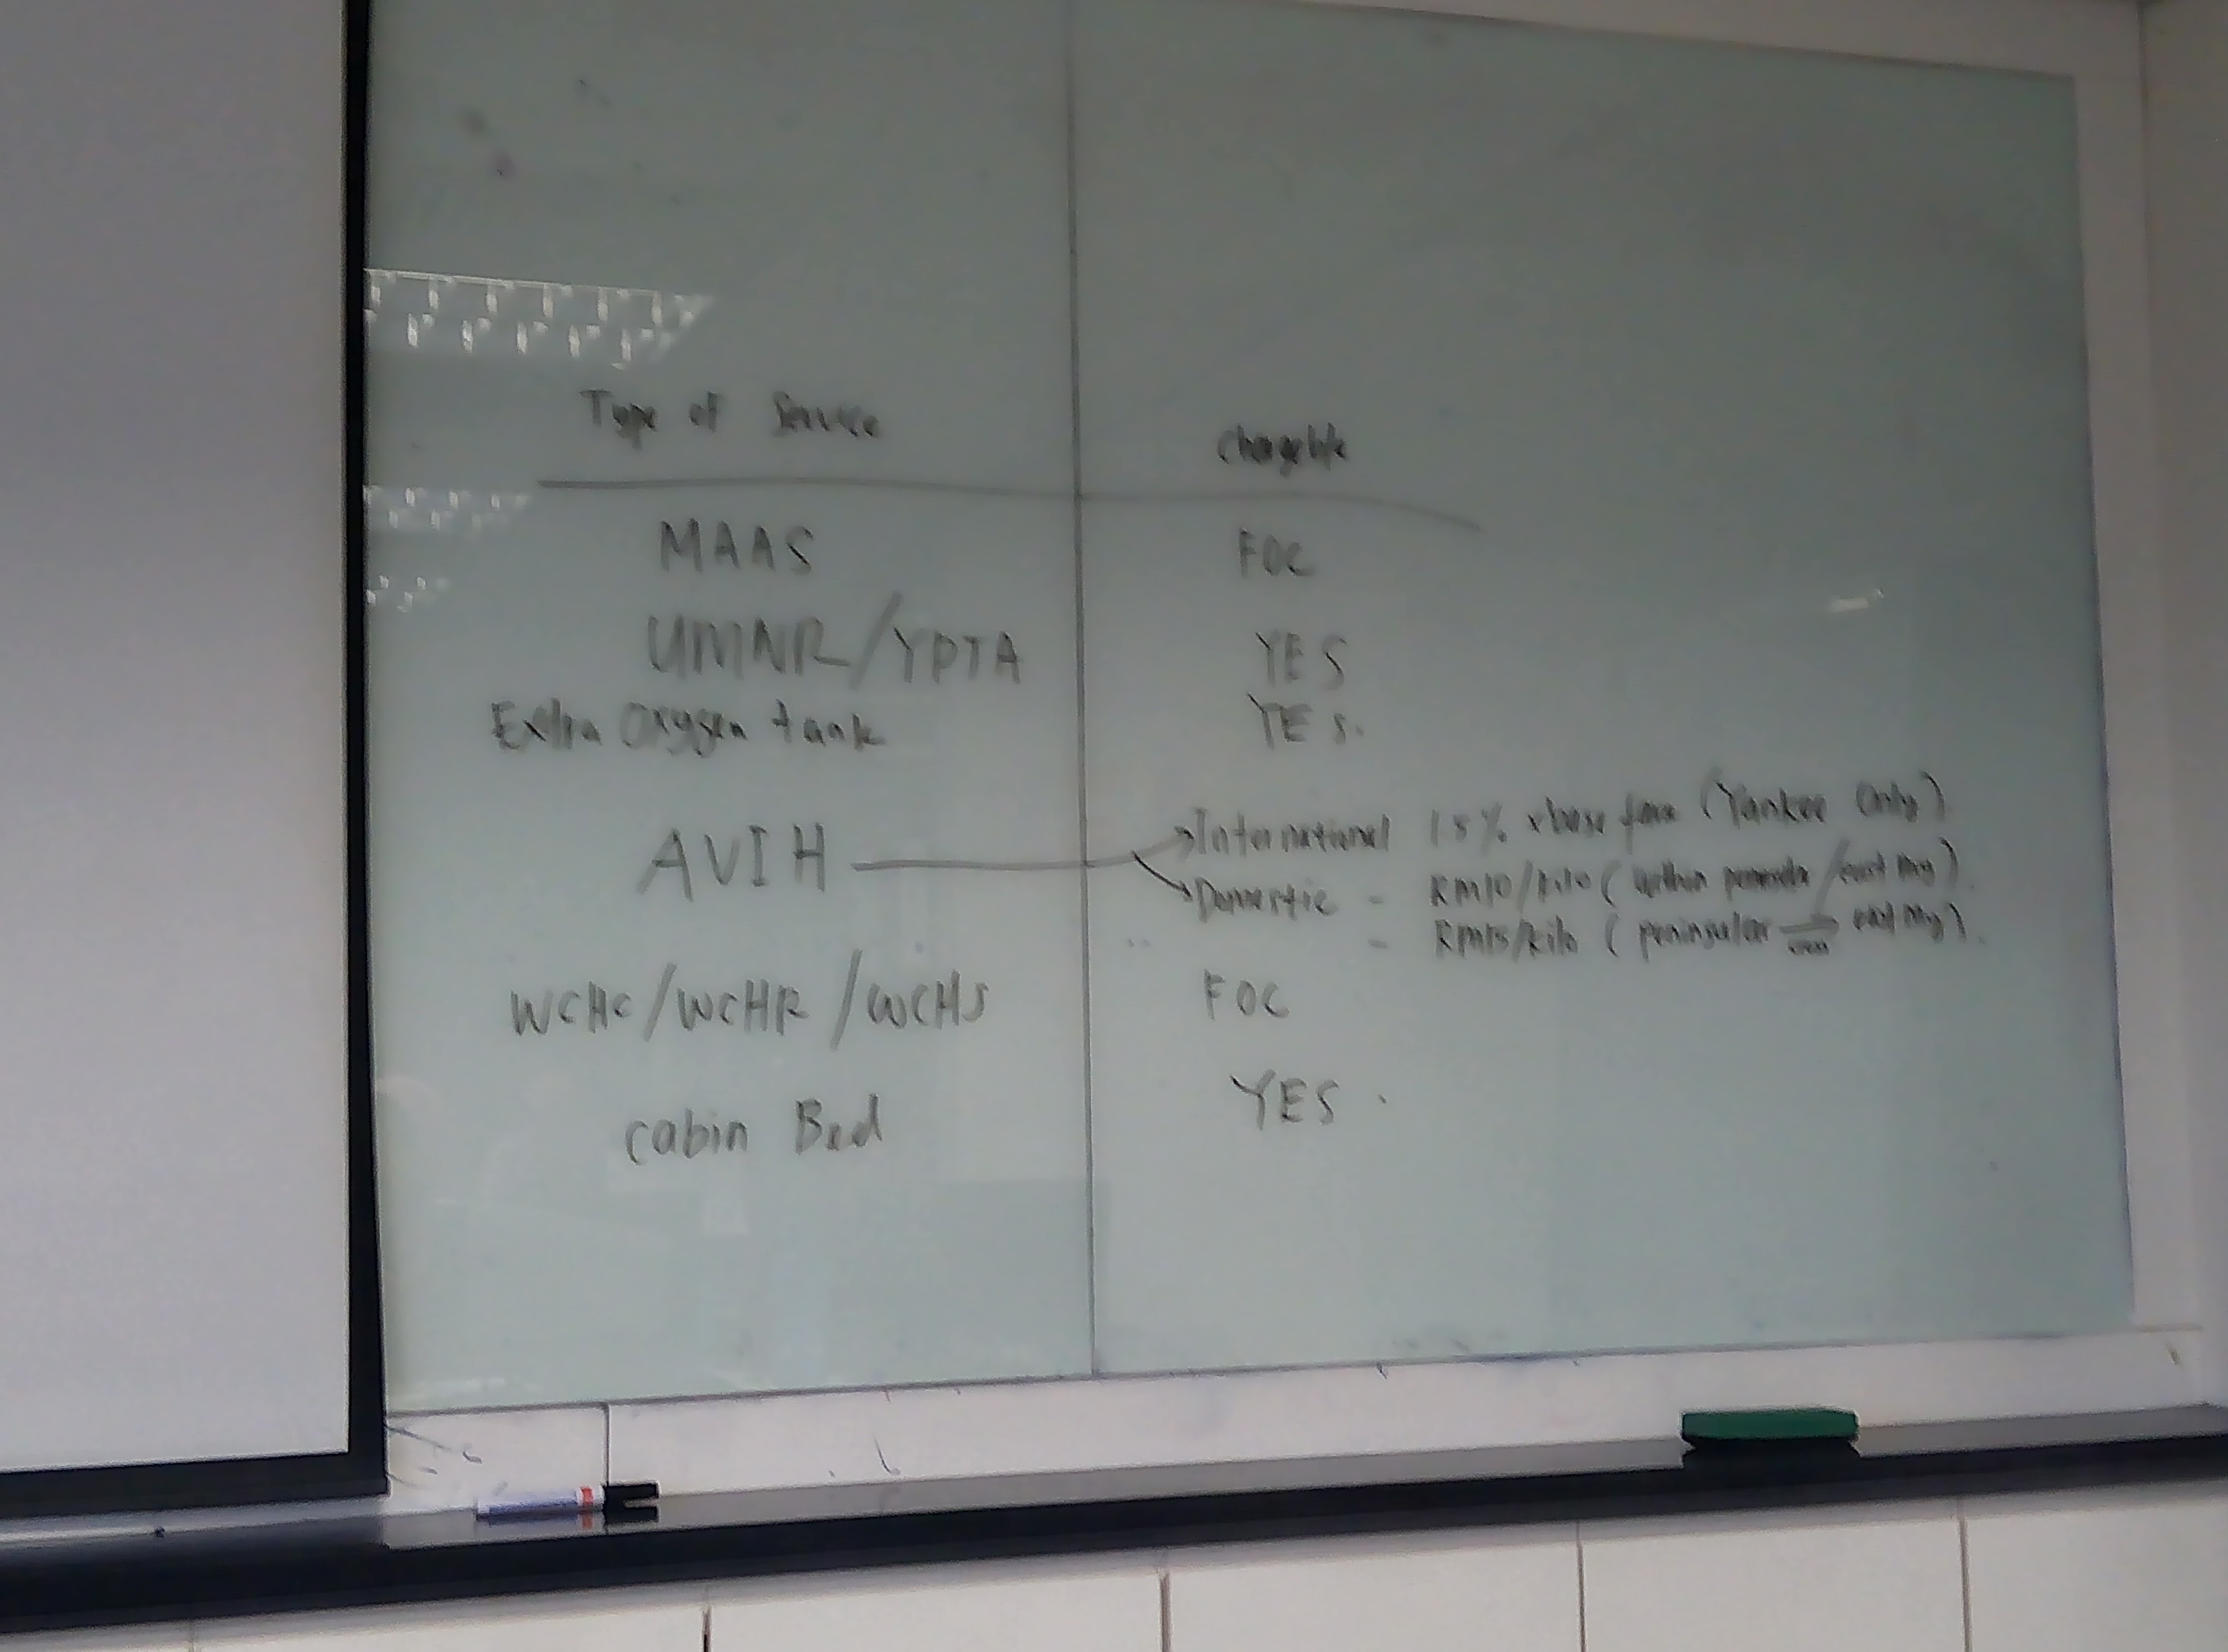 Type of Service
Chargeble
MAAS
FOC
UMNR/YPTA
YES
Extra Oxygen tank
YES.
AVIH
International 1.5% x base fare (Yankee Only)
Domestic - RM10/kilo (within peninsula/east My)
- RM15/kilo (peninsular east My).
WCHC/WCHR/WCHS
FOC
cabin Bed
YES.